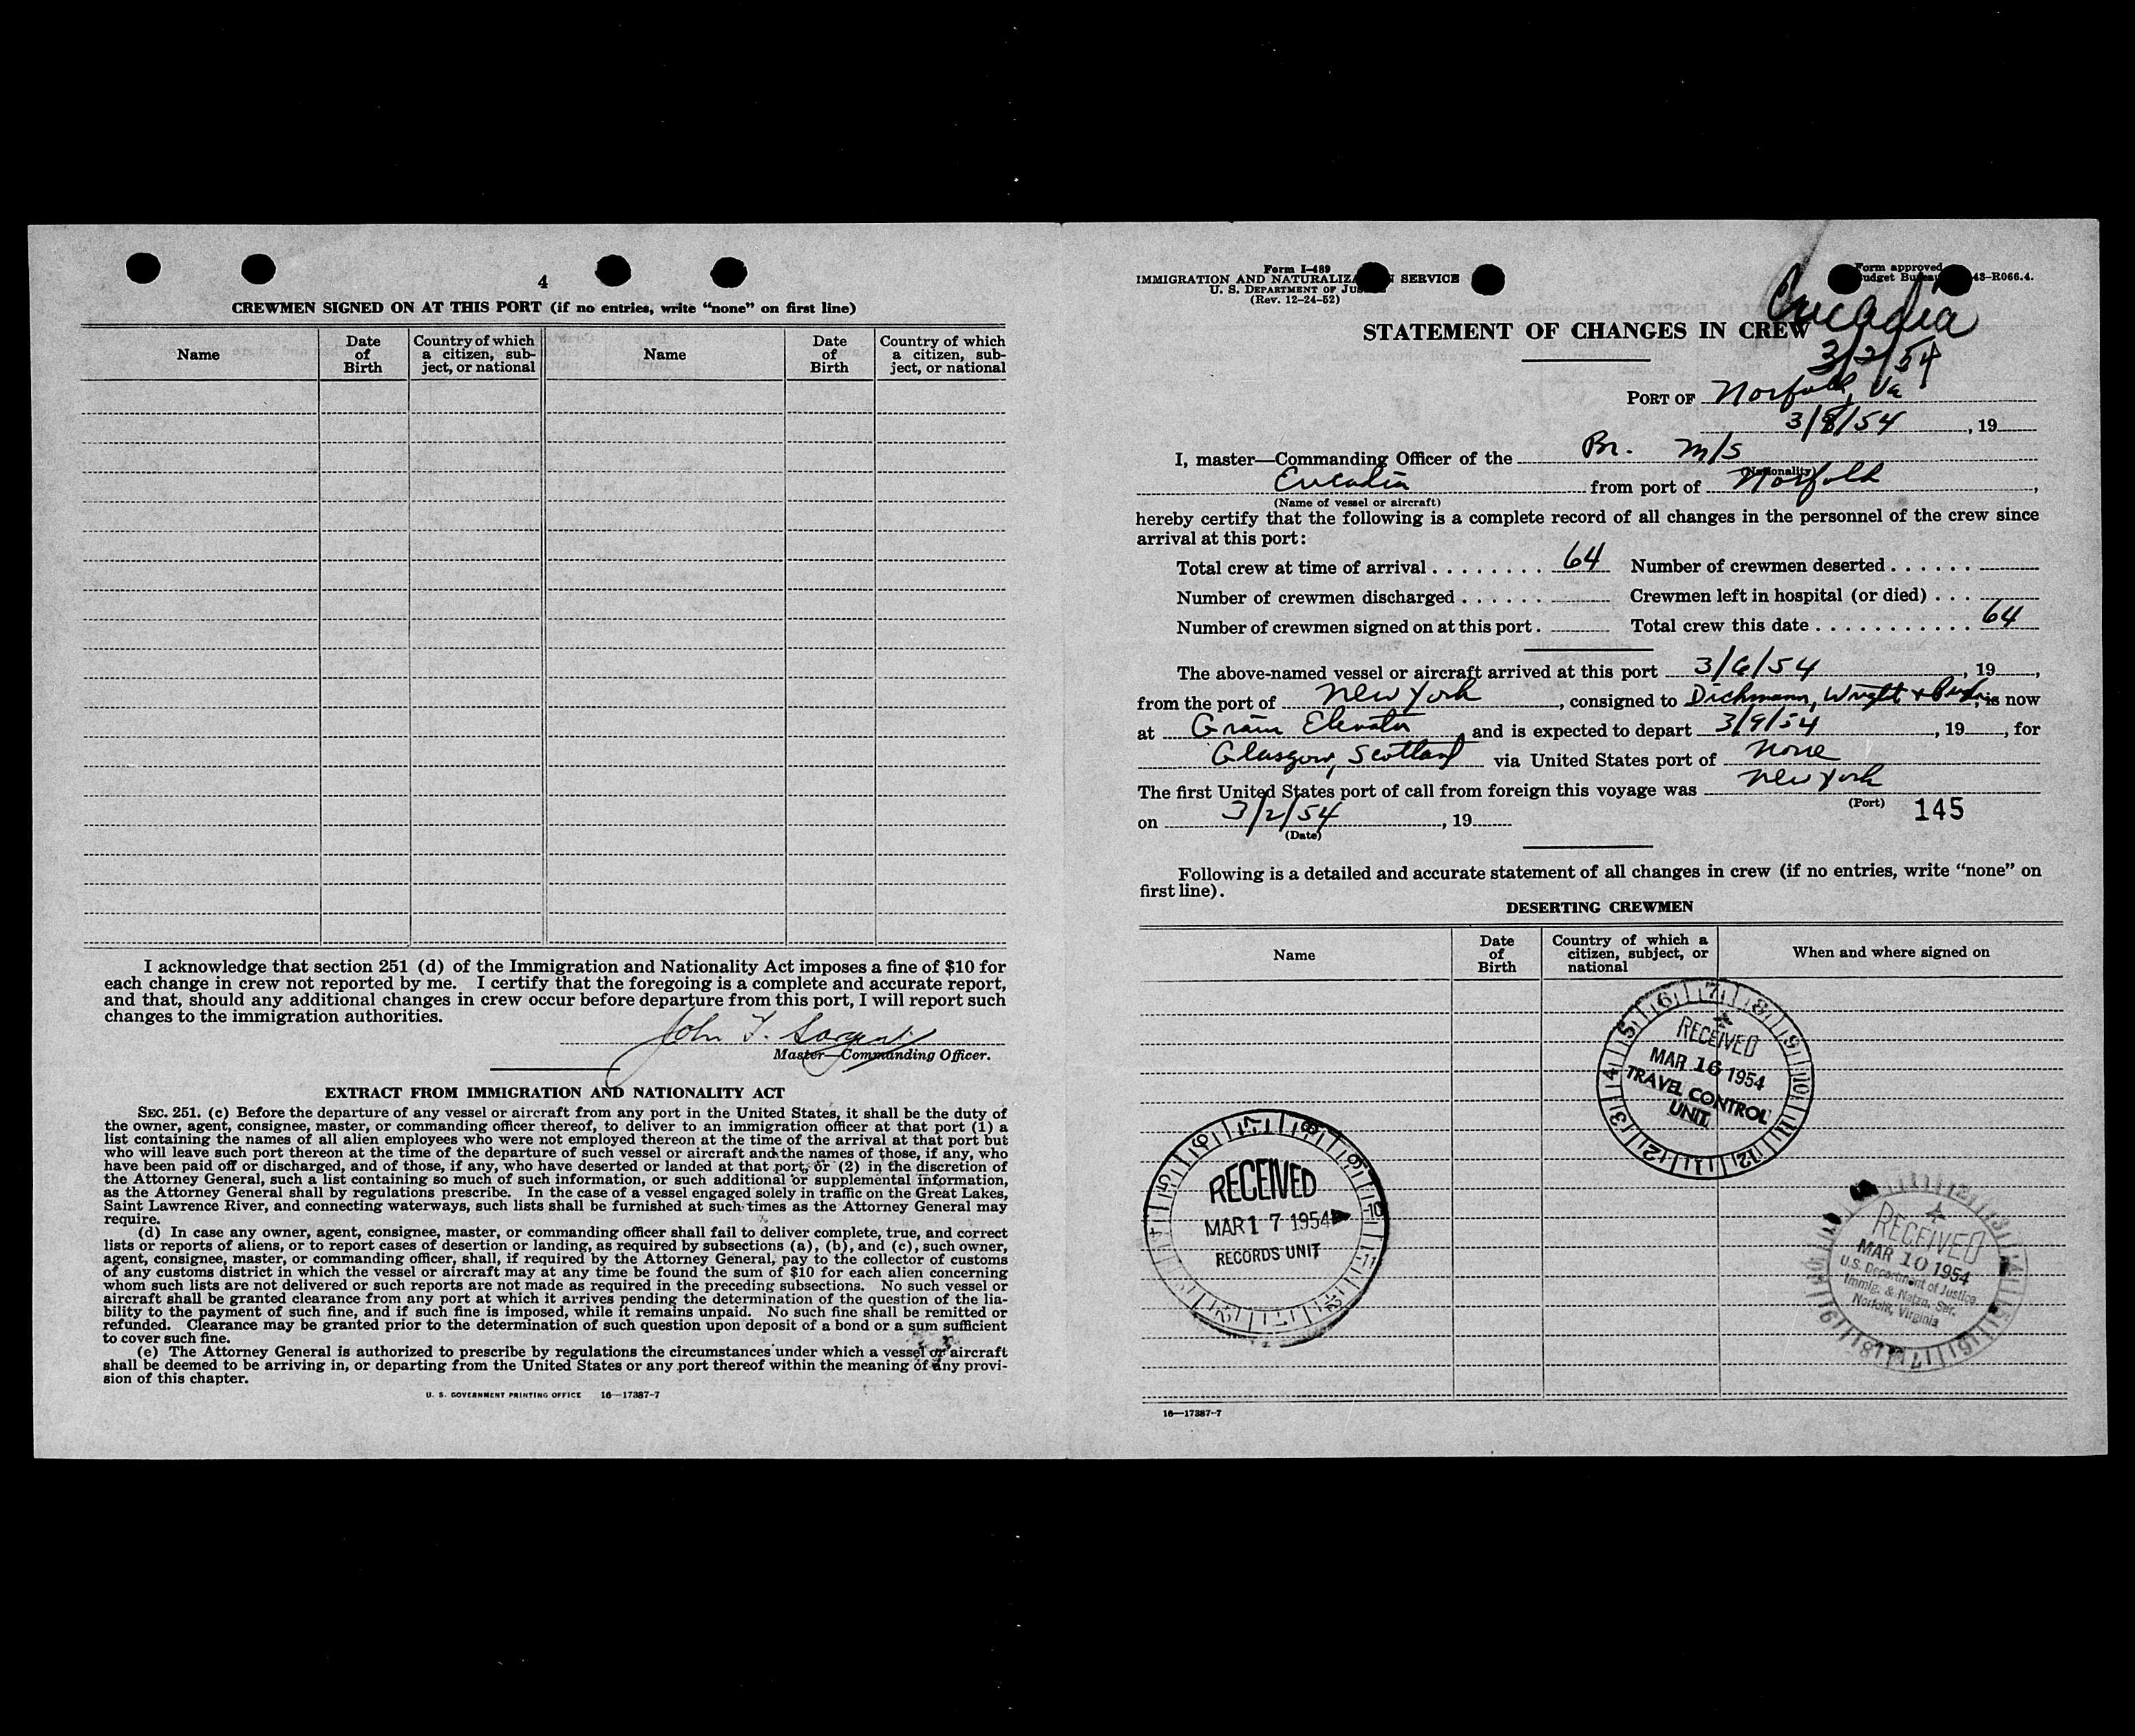 4
CREWMEN SIGNED ON AT THIS PORT (if no entries, write “none” on first line)
Name
Date of Birth
Country of which a citizen, sub-ject, or national
Name
Date of Birth
Country of which a citizen, sub-ject, or national
I acknowledge that section 251 (d) of the Immigration and Nationality Act imposes a fine of $10 for
each change in crew not reported by me. I certify that the foregoing is a complete and accurate report,
and that, should any additional changes in crew occur before departure from this port, I will report such
changes to the immigration authorities.
John Sargent
Master—Commanding Officer.
EXTRACT FROM IMMIGRATION AND NATIONALITY ACT
SEC. 251. (c) Before the departure of any vessel or aircraft from any port in the United States, it shall be the duty of
the owner, agent, consignee, master, or commanding officer thereof, to deliver to an immigration officer at that port (1) a
list containing the names of all alien employees who were not employed thereon at the time of the arrival at that port but
who will leave such port thereon at the time of the departure of such vessel or aircraft and the names of those, if any, who
have been paid off or discharged, and of those, if any, who have deserted or landed at that port, or (2) in the discretion of
the Attorney General, such a list containing so much of such information, or such additional or supplemental information,
as the Attorney General shall by regulations prescribe. In the case of a vessel engaged solely in traffic on the Great Lakes,
Saint Lawrence River, and connecting waterways, such lists shall be furnished at such times as the Attorney General may
require.
(d) In case any owner, agent, consignee, master, or commanding officer shall fail to deliver complete, true, and correct
lists or reports of aliens, or to report cases of desertion or landing, as required by subsections (a), (b), and (c), such owner,
agent, consignee, master, or commanding officer, shall, if required by the Attorney General, pay to the collector of customs
of any customs district in which the vessel or aircraft may at any time be found the sum of $10 for each alien concerning
whom such lists are not delivered or such reports are not made as required in the preceding subsections. No such vessel or
aircraft shall be granted clearance from any port at which it arrives pending the determination of the question of the lia-
bility to the payment of such fine, and if such fine is imposed, while it remains unpaid. No such fine shall be remitted or
refunded. Clearance may be granted prior to the determination of such question upon deposit of a bond or a sum sufficient
to cover such fine.
(e) The Attorney General is authorized to prescribe by regulations the circumstances under which a vessel or aircraft
shall be deemed to be arriving in, or departing from the United States or any port thereof within the meaning of any provi-
sion of this chapter.
U. S. GOVERNMENT PRINTING OFFICE 16—17387-7
Form I-489
IMMIGRATION AND NATURALIZA N SERVICE
U. S. DEPARTMENT OF JU
(Rev. 12-24-52)
Form approved
Budget Bureau 43-R066.4.
STATEMENT OF CHANGES IN CREW
3/2/54
PORT OF Norfolk, Va
3/8/54, 19
I, master—Commanding Officer of the Br. m/s
(Nationality)
from port of Norfolk,
(Name of vessel or aircraft)
hereby certify that the following is a complete record of all changes in the personnel of the crew since
arrival at this port:
Total crew at time of arrival . . . . . . . . 64 Number of crewmen deserted . . . . . .
Number of crewmen discharged . . . . . . Crewmen left in hospital (or died) . . .
Number of crewmen signed on at this port . Total crew this date . . . . . . . . . . . 64
The above-named vessel or aircraft arrived at this port 3/6/54, 19,
from the port of New York, consigned to Dichmann, Wright & Pugh, is now
at Grain Elevator, and is expected to depart 3/9/54, 19, for
Glasgow, Scotland via United States port of None
The first United States port of call from foreign this voyage was New York
(Port) 145
on 3/2/54, 19
(Date)
Following is a detailed and accurate statement of all changes in crew (if no entries, write “none” on
first line).
DESERTING CREWMEN
Name
Date of Birth
Country of which a citizen, subject, or national
When and where signed on
RECEIVED
MAR 16 1954
TRAVEL CONTROL
UNIT
RECEIVED
MAR 17 1954
RECORDS UNIT
RECEIVED
MAR 10 1954
U.S. Department of Justice
Immig. & Natzn. Ser.
Norfolk, Virginia
16—17387-7